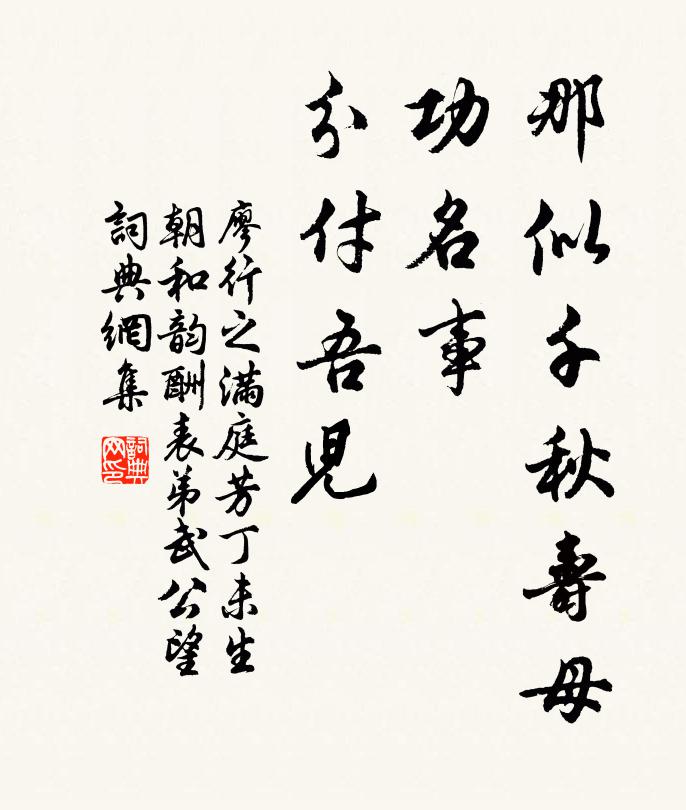 那似千秋壽母
功名事
分付吾児
廖行之滿庭芳丁未生
朝和韵酬表弟武公望
詞典網集
詞典
网印